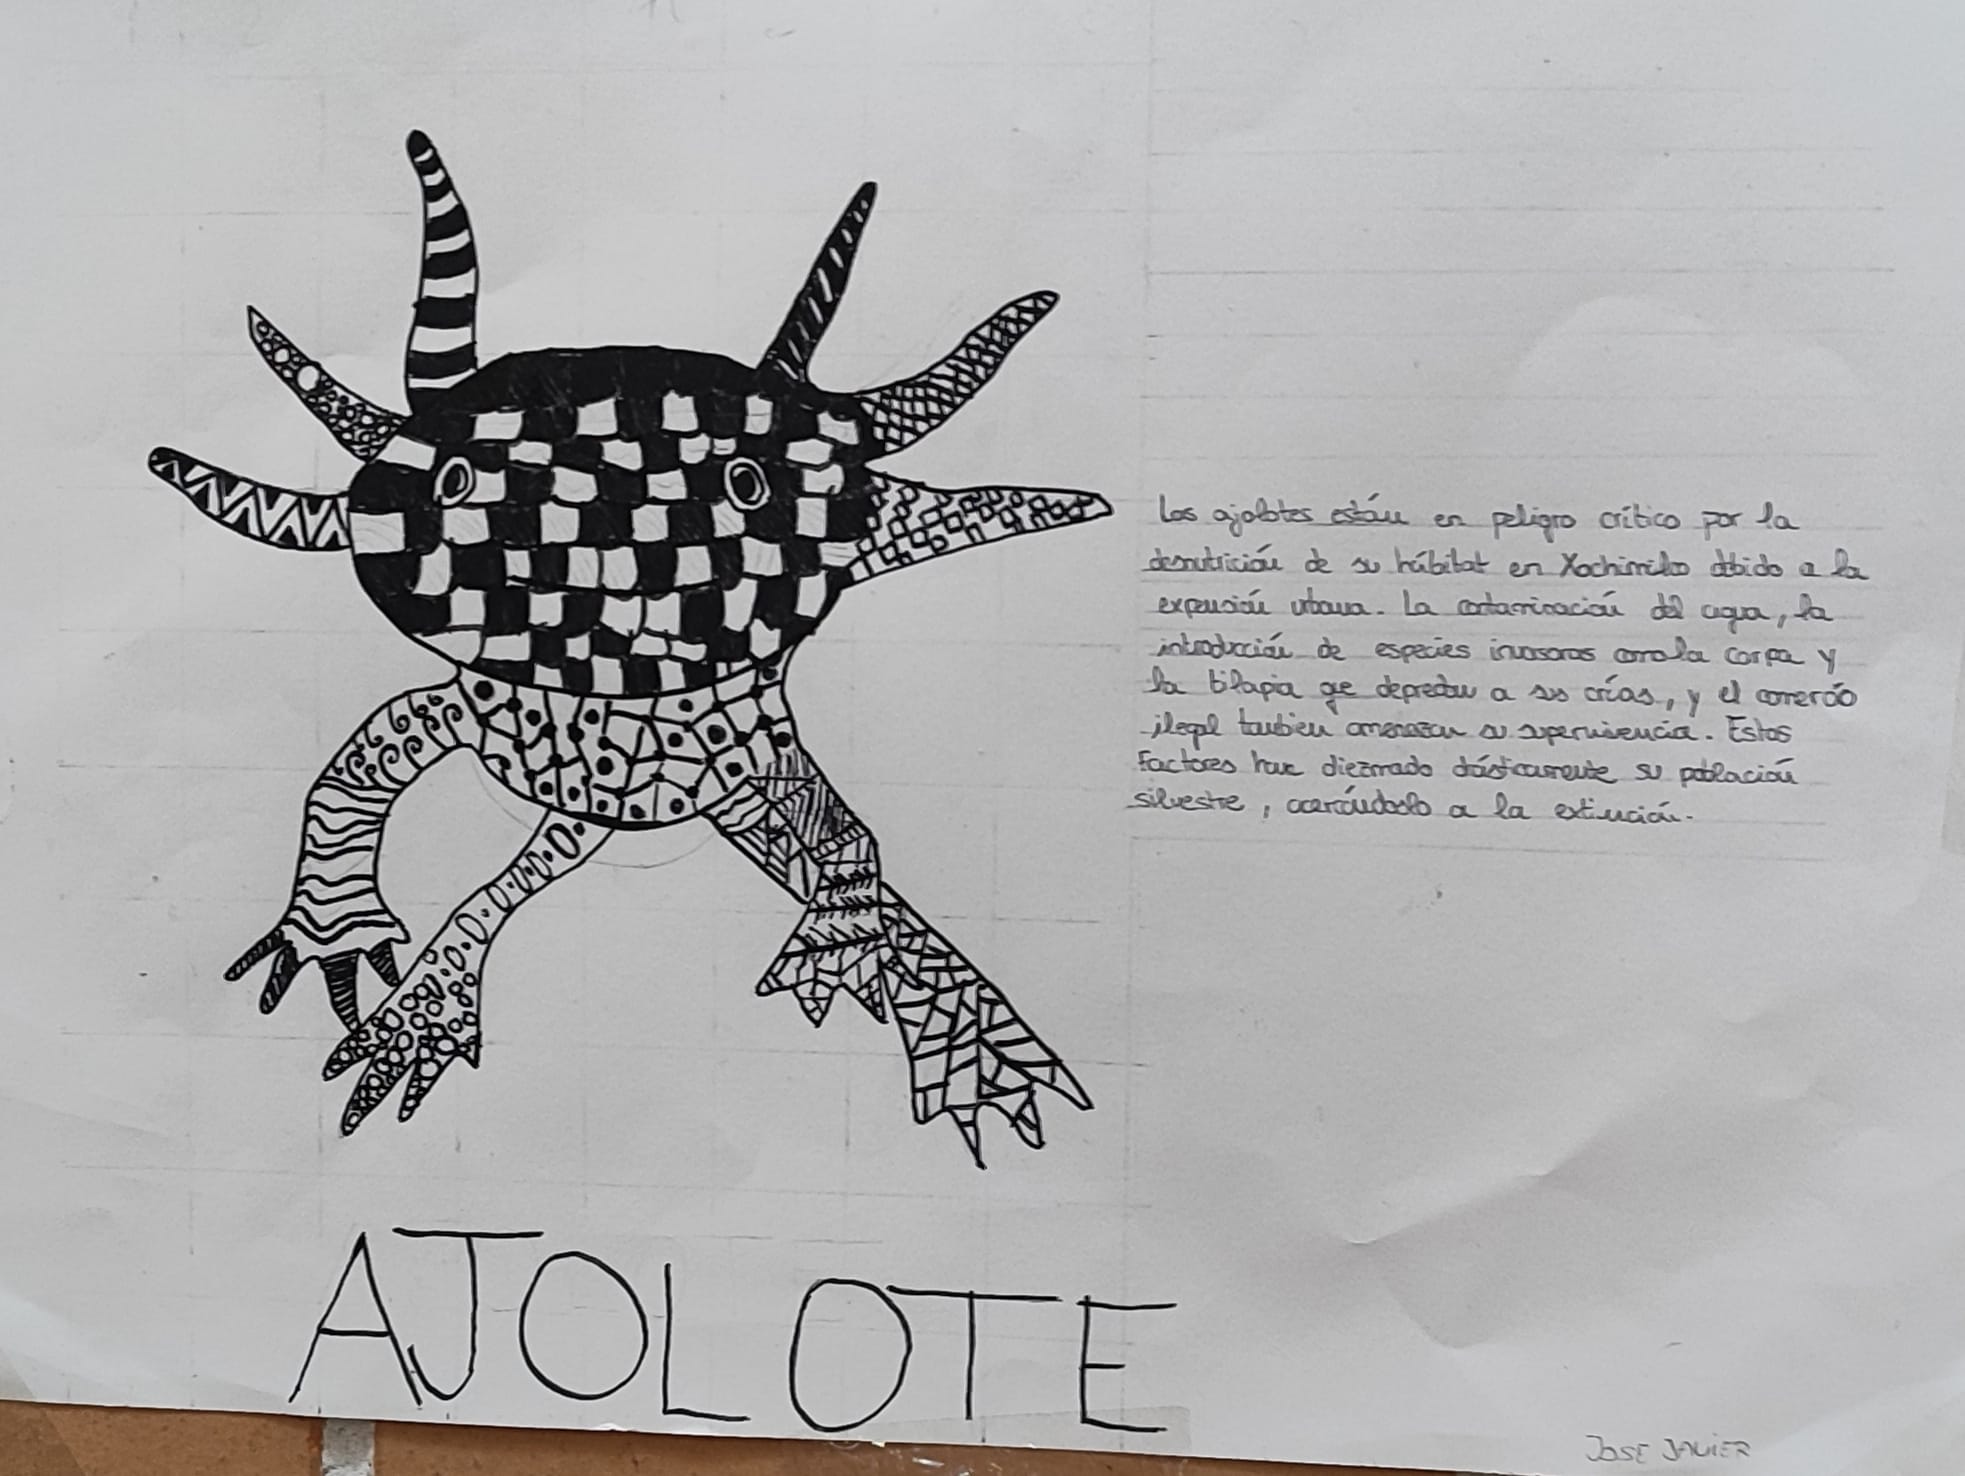 Los ajolotes están en peligro crítico por la
desnutrición de su hábitat en Xochimilco debido a la
expensión urbana. La contaminación del agua, la
introducción de especies invasoras como la carpa y
la tilapia qe depredan a sus crías, y el comercio
ilegal tambien amenazan su supervivencia. Estos
Factores han diezmado drásticamente su población
silvestre, acercándolo a la extinción.
AJOLOTE
JOSE JAVIER